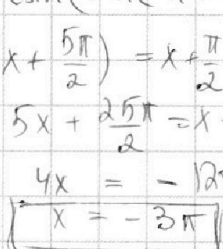 x + 5π/2) = x + π/2
5x + 25π/2 = x
4x = - 12
x = - 3π